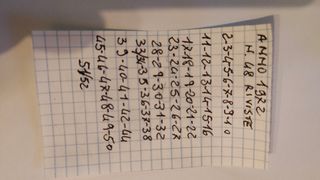 ANNO 1972
N. 48 RIVISTE
2-3-4-5-6-7-8-9-10
11-12-13-14-15-16
17-18-19-20-21-22
23-24-25-26-27
28-29-30-31-32
33/34-35-36-37-38
39-40-41-42-44
45-46-47-48-49-50
51/52